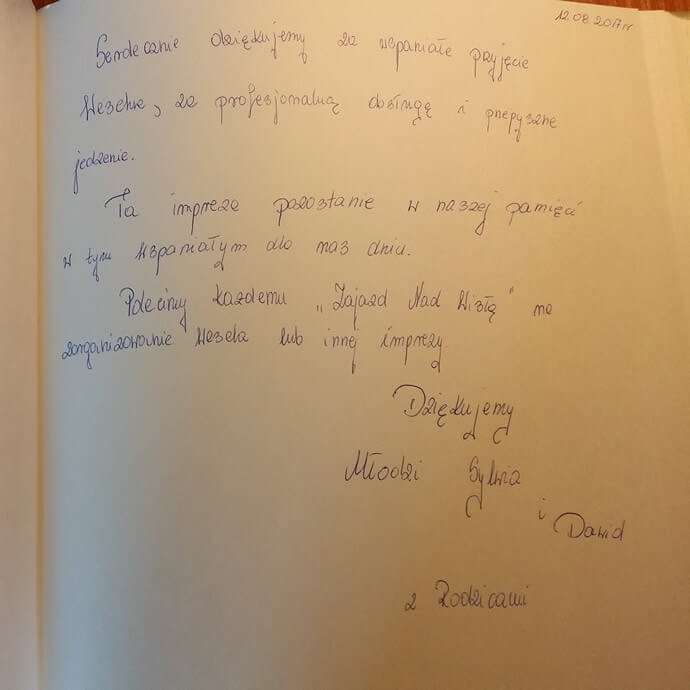 12.08.2017r
Serdecznie dziękujemy za wspaniałe przyjęcie
Weselne, za profesjonalną obsługę i przepyszne
jedzenie.
Ta impreza pozostanie w naszej pamięci
w tym wspaniałym dla nas dniu.
Polecimy każdemu „Zajazd Nad Wisłą" na
zorganizowanie Wesela lub innej imprezy.
Dziękujemy
Młodzi Sylwia
i
Dawid
z Rodzicami